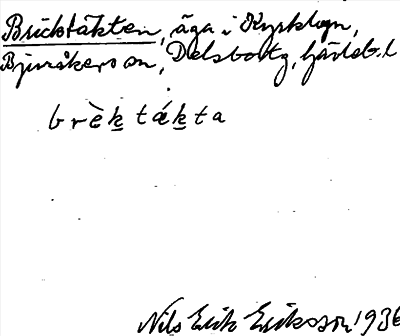 Bricktäkten, äga i Kyrkbyn,
Bjuråkers sn, Delsbotg, Gävleb. l
brèk̲ták̲ta
Nils Erik Eriksson 1936